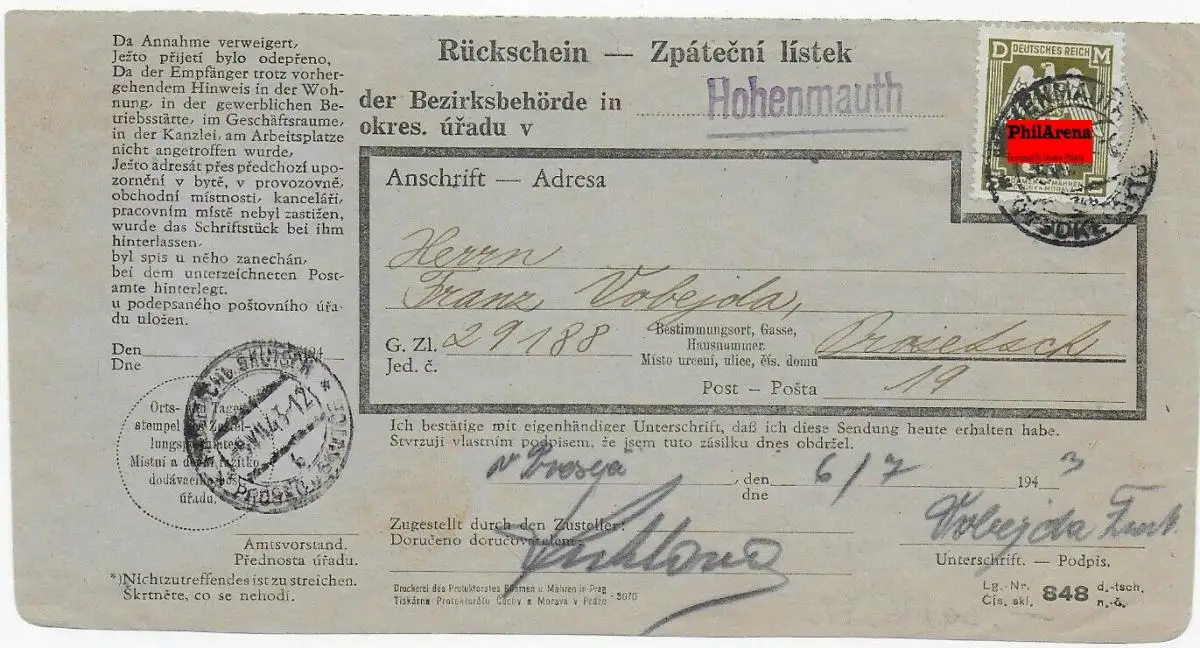 Da Annahme verweigert,
Ježto přijetí bylo odepřeno,
Da der Empfänger trotz vorher-
gehendem Hinweis in der Woh-
nung, in der gewerblichen Be-
triebsstätte, im Geschäftsraume,
in der Kanzlei, am Arbeitsplatze
nicht angetroffen wurde,
Ježto adresát přes předchozí upo-
zornění v bytě, v provozovně,
obchodní místnosti, kanceláři,
pracovním místě nebyl zastižen,
wurde das Schriftstück bei ihm
hinterlassen.
byl spis u něho zanechán,
bei dem unterzeichneten Post-
amte hinterlegt.
u podepsaného poštovního úřa-
du uložen.
Den 194
Dne
Orts- und Tages-
stempel
lungs
Místní a
dodávací
úřadu.
SKUTSCH
PROSEČ
Amtsvorstand.
Přednosta úřadu.
*)Nichtzutreffendes ist zu streichen.
Škrtněte, co se nehodí.
Rückschein — Zpáteční lístek
der Bezirksbehörde in Hohenmauth
okres. úřadu v
D DEUTSCHES REICH M
PhilArena
Anschrift — Adresa
Herrn
Franz Vobejda,
G. Zl. 29188 Bestimmungsort, Gasse, Prosetsch
Jed. č. Hausnummer.
Místo urcení, ulice, čís. domu
Post - Pošta 19
Ich bestätige mit eigenhändiger Unterschrift, daß ich diese Sendung heute erhalten habe.
Stvrzuji vlastním podpisem, že jsem tuto zásilku dnes obdržel.
, den 6/7 1943
dne
Zugestellt durch den Zusteller:
Doručeno doručovatelem:
Vobejda
Unterschrift. — Podpis.
Druckerei des Protektorates Böhmen u Mähren in Prag
Tiskárna Protektorátu Čechy a Morava v Praze - 3070
Lg.-Nr. 848 d.-tsch.
Čís. skl. n.-č.